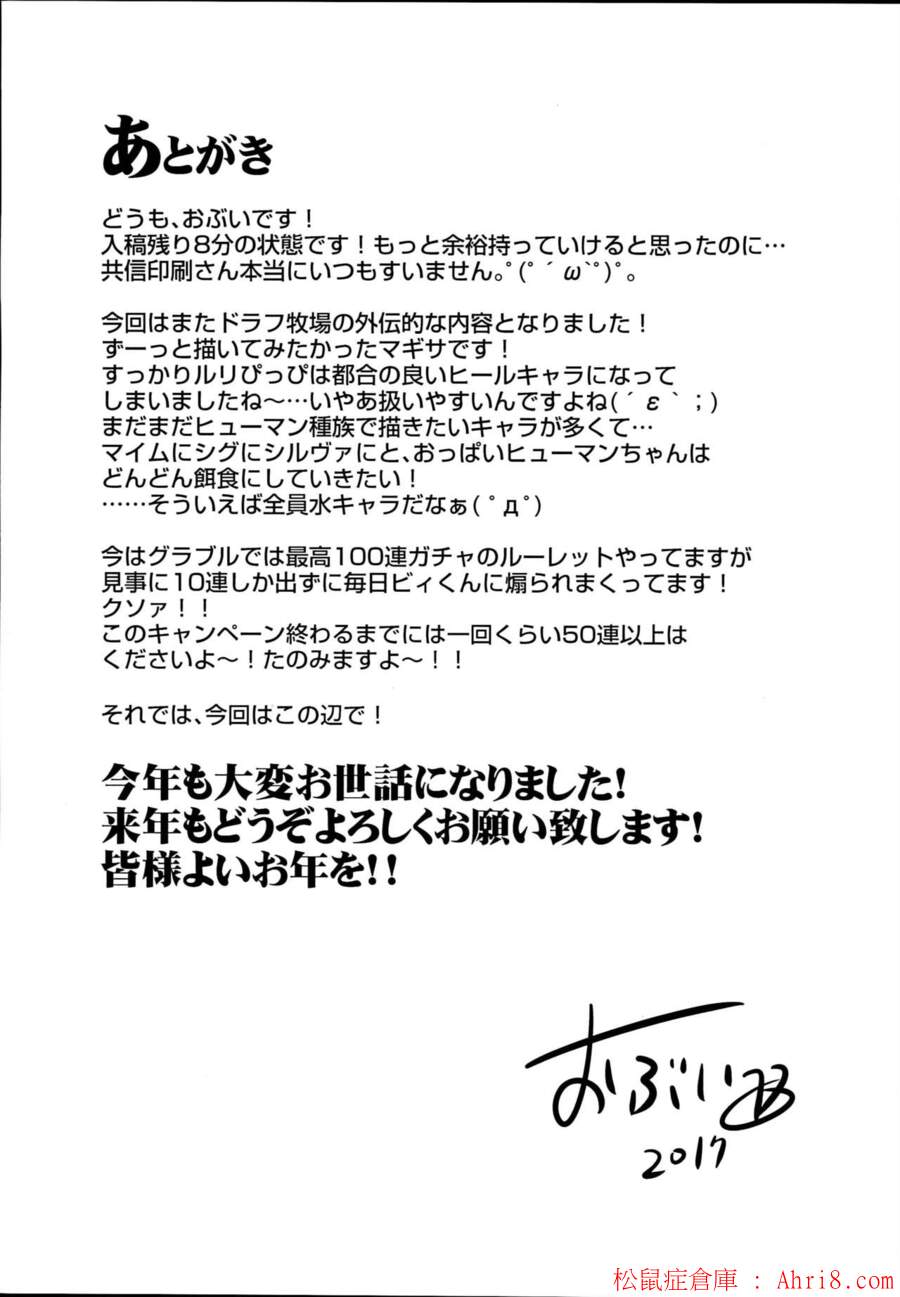 あとがき
どうも、おぶいです！
入稿残り8分の状態です！もっと余裕持っていけると思ったのに…
共信印刷さん本当にいつもすいません。ﾟ(ﾟ´ω`ﾟ)ﾟ。
今回はまたドラフ牧場の外伝的な内容となりました！
ずーっと描いてみたかったマギサです！
すっかりルリぴっぴは都合の良いヒールキャラになって
しまいましたね～…いやあ扱いやすいんですよね(´ε｀；)
まだまだヒューマン種族で描きたいキャラが多くて…
マイムにシグにシルヴァにと、おっぱいヒューマンちゃんは
どんどん餌食にしていきたい！
……そういえば全員水キャラだなぁ(ﾟдﾟ)
今はグラブルでは最高100連ガチャのルーレットやってますが
見事に10連しか出ずに毎日ビィくんに煽られまくってます！
クソァ！！
このキャンペーン終わるまでには一回くらい50連以上は
くださいよ～！たのみますよ～！！
それでは、今回はこの辺で！
今年も大変お世話になりました！
来年もどうぞよろしくお願い致します！
皆様よいお年を！！
おぶい
2017
松鼠症倉庫 : Ahri8.com